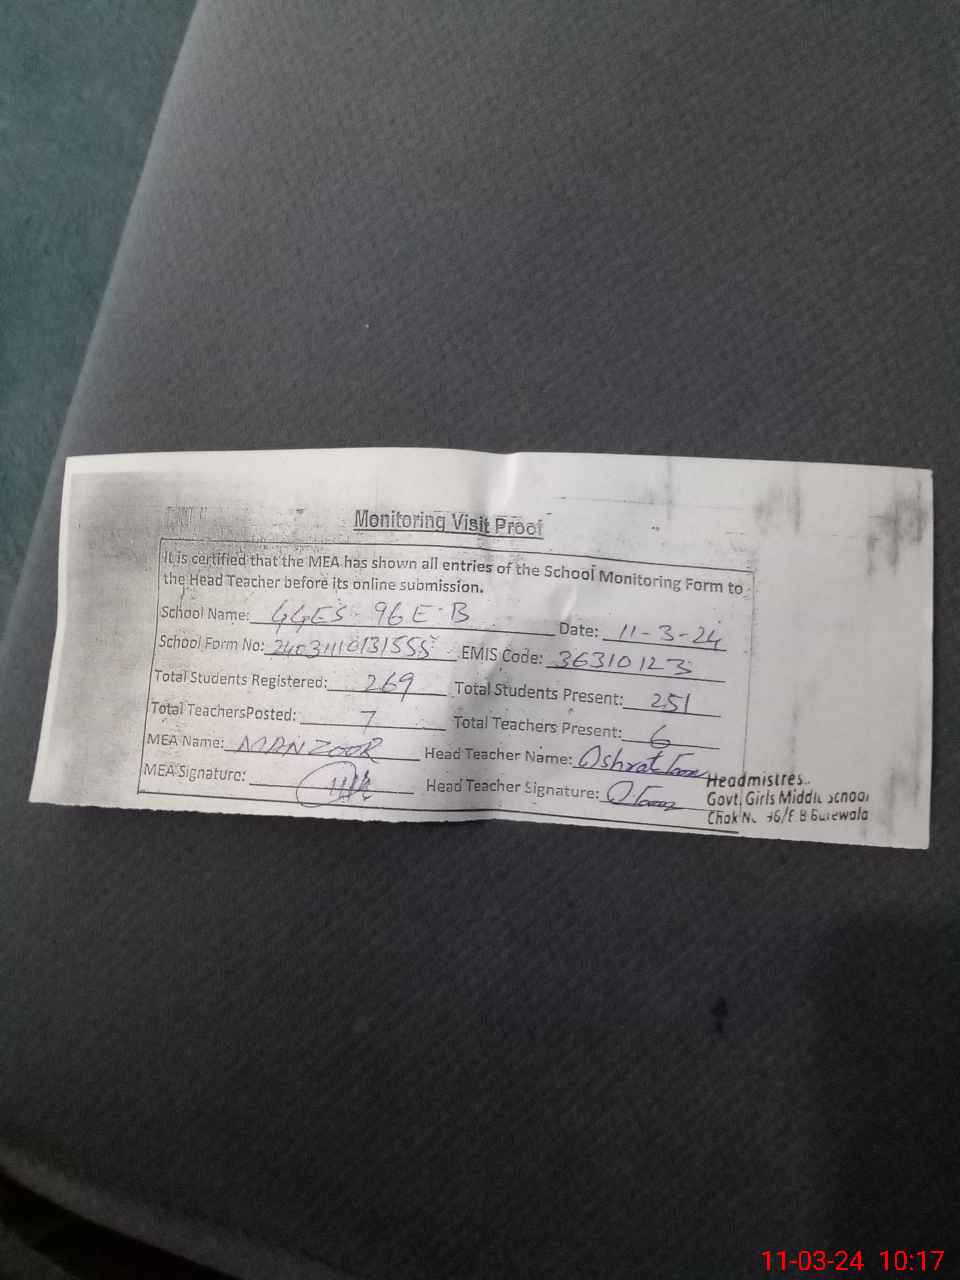 Monitoring Visit Proof
It is certified that the MEA has shown all entries of the School Monitoring Form to
the Head Teacher before its online submission.
School Name: GGES 96 E-B Date: 11-3-24
School Form No: EMIS Code: 36310123
Total Students Registered: 269 Total Students Present: 251
Total TeachersPosted: 7 Total Teachers Present: 6
MEA Name: MANZOOR Head Teacher Name:
MEA Signature: Head Teacher Signature:
Headmistres..
Govt. Girls Middle School
Chak N. 96/E B Burewala
11-03-24 10:17